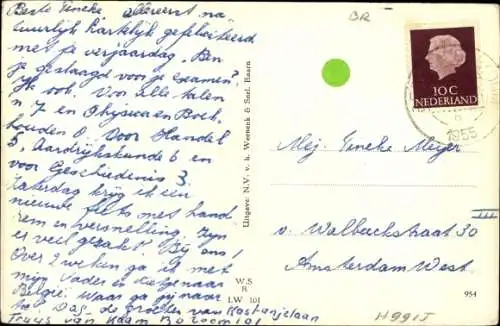 Beste Ineke, allereerst na-
tuurlijk hartelijk gefeliciteerd
met je verjaardag. Ben
je geslaagd voor je examen?
Ik ook. Voor alle talen
n 7 en Physica en Boek-
houden 8. Voor Handel
5, Aardrijkskunde 6 en
voor Geschiedenis 3.
Zaterdag krijg ik een
nieuwe fiets met hand
rem en versnelling. Zijn
es veil gezakt? Bij ons!
Over 2 weken ga ik met
mijn Vader en naar
België. Waar ga jij naar
toe? Dag. de groeten van Kastanjelaan
Truus van
BR
10 C
NEDERLAND
1955
Mej. Ineke Meyer
v. Walbeeckstraat 30
Amsterdam West.
Uitgave: N.V. v.h. Weenenk & Snel, Baarn
W.S.
B
LW 101
954
H991J